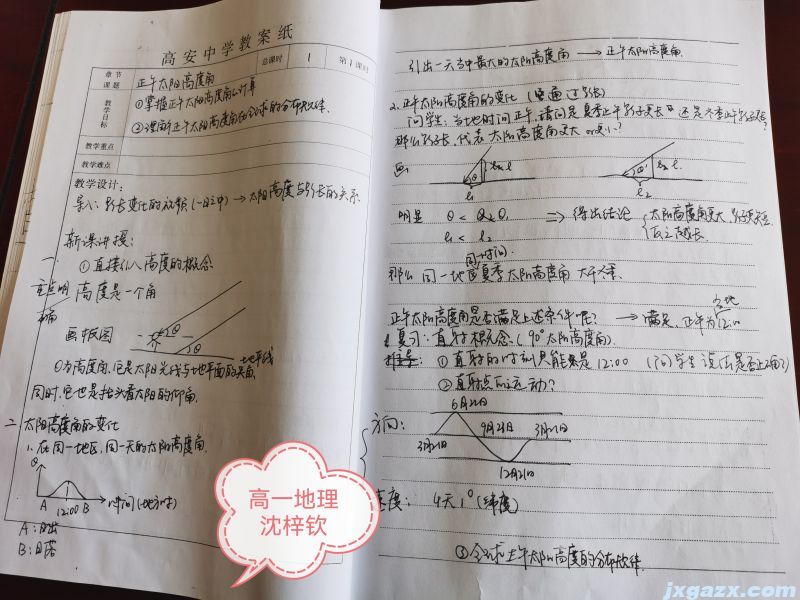 高安中学教案纸
章节
课题
正午太阳高度角
总课时
1
第1课时
教学目标
①掌握正午太阳高度角的计算
②理解正午太阳高度角的全球的分布规律.
教学重点
教学难点
教学设计:
导入: 影长变化的视频(一日之中) → 太阳高度与影长的关系.
新课讲授:
一.
①直接引入高度的概念
重点明确
高度是一个角
画板图
θ
θ
地平线
θ为高度角,它是太阳光线与地平面的夹角.
同时,它也是抬头看太阳的仰角.
二 太阳高度角的变化
1. 在同一地区,同一天的太阳高度角.
θ
A 12:00 B
时间(地方时)
A:日出
B:日落
高一地理
沈梓钦
引出一天当中最大的太阳高度角 → 正午太阳高度角.
2. 正午太阳高度角的变化 (通过影长)
问学生:当地时间正午,请问是夏季正午影子更长 还是冬季正午影子更长?
那么影长,代表太阳高度角更大 or 更小?
画:
θ
l1
θ'
l2
明显
l1 < l2
⇒ 得出结论
太阳高度角更大,影子更短.
反之越长.
同一时间.
那么同一地区夏季太阳高度角大于冬季.
正午太阳高度角是否满足上述条件呢? → 满足,正午为12:00
当地
复习:直射概念.(90°太阳高度角).
①直射的时刻只能是12:00 (问学生说法是否正确?)
②直射点的运动?
方向:
6月22日
3月21日
9月23日
3月21日
12月22日
速度: 4天1°(纬度)
③全球正午太阳高度的分布规律.
jxgazx.com